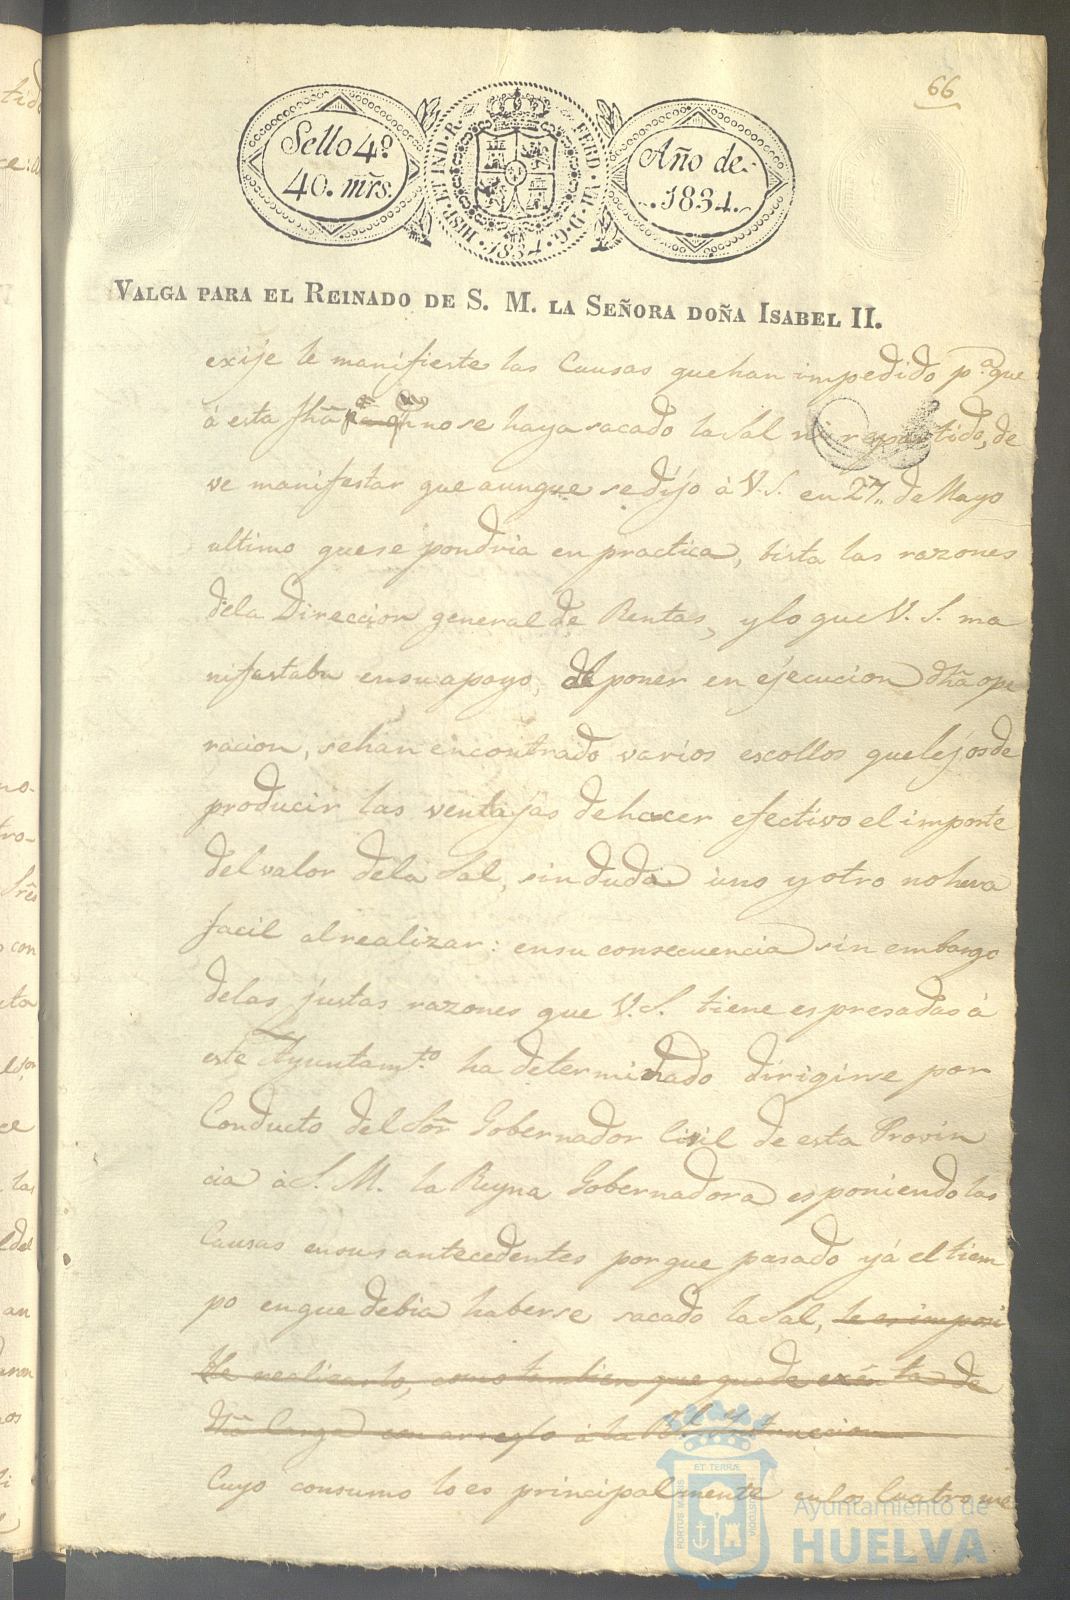 66
Sello 4º
40. mrs.
HISP. ET IND. R. FERD. VII. D. G. 1834
Año de
1834.
VALGA PARA EL REINADO DE S. M. LA SEÑORA DOÑA ISABEL II.
exije le manifieste las Causas quehan impedido pª. que
á esta fhã no se haya sacado la Sal ni repartido, de
ve manifestar que aunque sedijo á V. S. en 27,, de Mayo
ultimo quese pondria en practica, bista las razones
dela Direccion general de Rentas, y lo que V. S. ma
nifestaba ensu apoyo, al poner en ejecucion dhã ope
racion, sehan encontrado varios escollos que lejos de
producir las ventajas de hacer efectivo el importe
del valor dela Sal, sin duda uno y otro no hera
facil al realizar: ensu consecuencia sin embargo
delas justas razones que V. S. tiene espresadas á
este Ayuntamtº. ha determinado dirigirse por
Conducto del Sor Gobernador Civil de esta Provin
cia á S. M. la Reyna Gobernadora esponiendo las
Causas ensus antecedentes porque pasado yá el tiem
po enque debia haberse sacado la Sal, le es imposi
ble realizarlo, como tambien que quede exenta de
dhã Carga con arreglo á la Rl. Ystruccion
Cuyo consumo lo es principalmente en los Cuatro me
PORTUS MARIS ET TERRÆ CUSTODIA
Ayuntamiento de
HUELVA